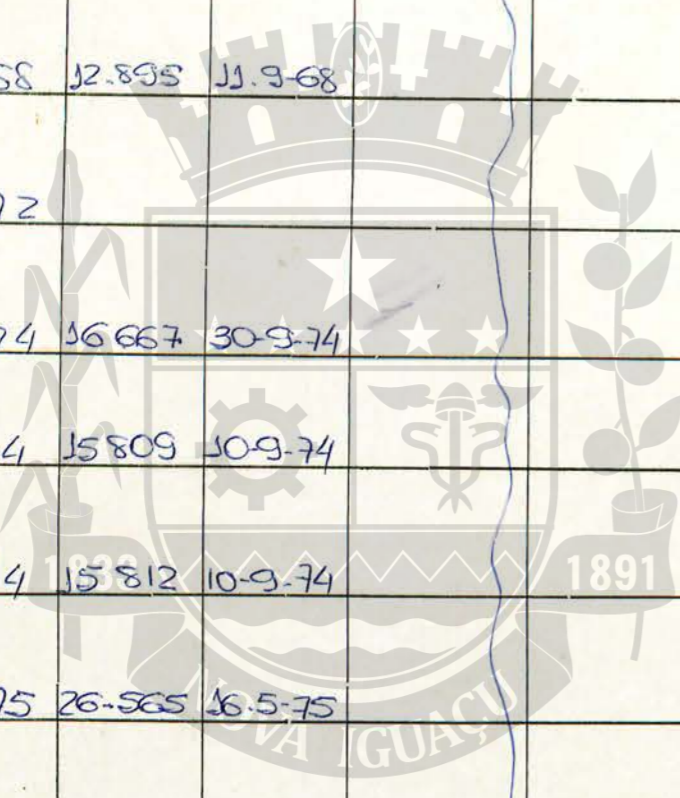 58 12.895 11.9-68
72
74 16667 30-9-74
4 15809 10-9-74
4 15812 10-9-74
75 26-565 16.5-75
1833 1891
NOVA IGUAÇU